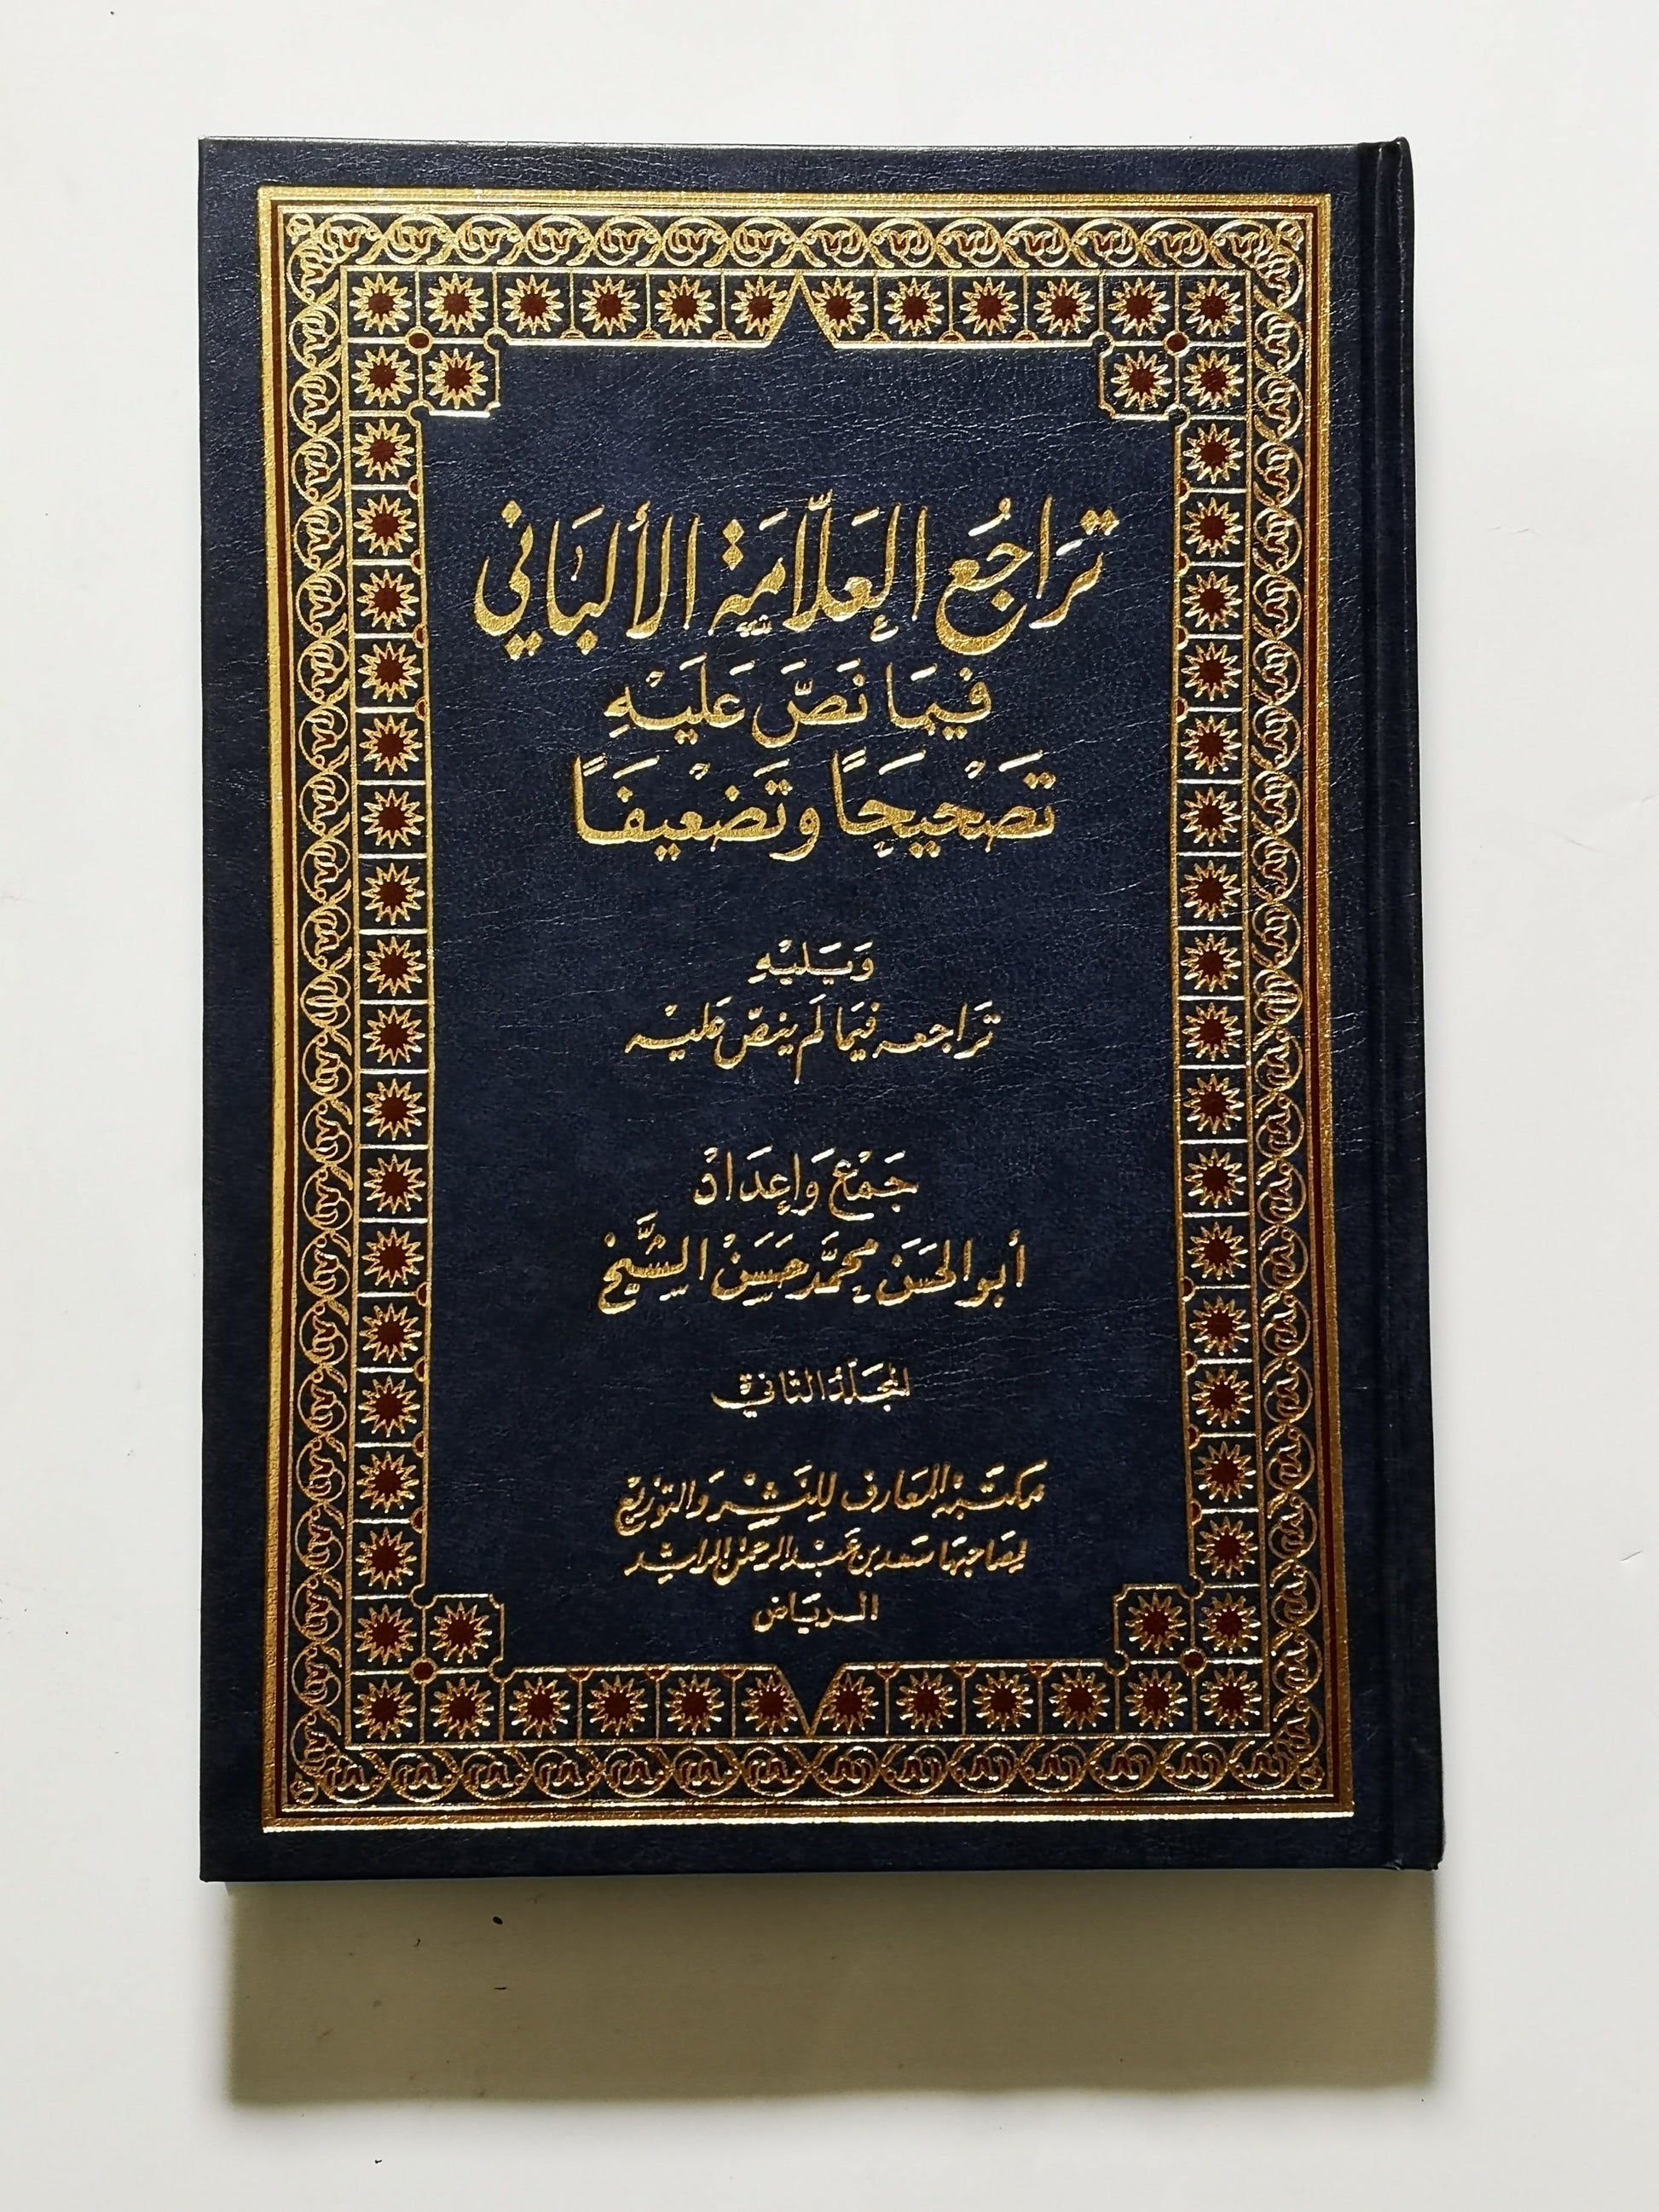 تَرَاجُع العَلّامَة الألبَاني
فيمَا نَصَّ عَلَيْهِ
تَصْحِيحًا وتَضْعِيفًا
وَيَليْهِ
تَرَاجعه فيمَا لَم ينصّ عَليْه
جَمْع وَإعدَاد
أبو الحَسَن محمَّد حَسَن الشَّيخ
المجَلّد الثاني
مكتَبة المعَارف للنَشْر وَالتوزيع
لِصَاحبهَا سَعد بن عَبْد الرحمن الراشد
الريَاض